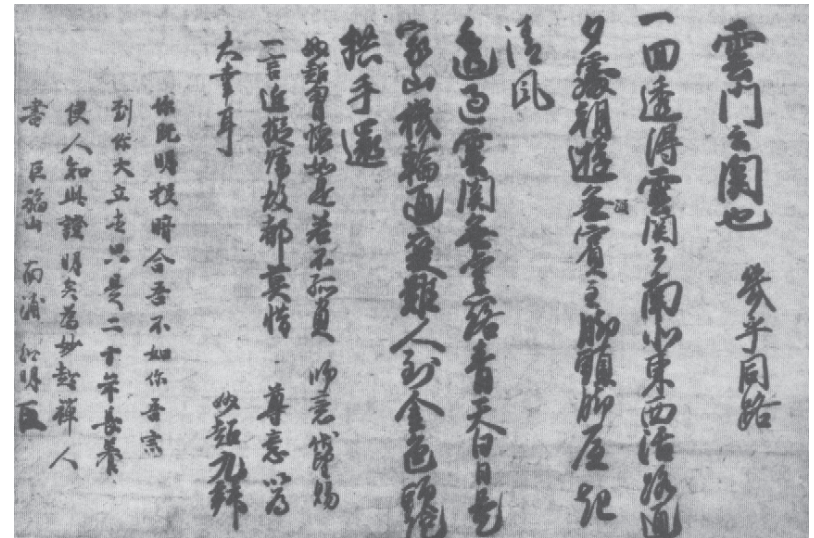 雲門云關也　幾乎同路
一回透得雲關了南北東西活路通
夕處朝遊無賓主脚頭脚底起
清風
透過雲關無舊路青天白日是
家山機輪通變難人到金色頭陀
拱手還
妙超胸懷如是若不孤負　師意伏望賜
一言近擬歸故都莫惜　尊意以爲
大幸耳　妙超九拜
你既明投暗合吾不如你吾宗
到你大立去只是二十年長養
使人知此證明矣爲妙超禪人
書　巨福山　南浦紹明